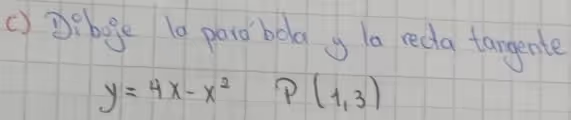 c) Diboje la parábola y la recta tangente
y = 4x - x² P (1,3)